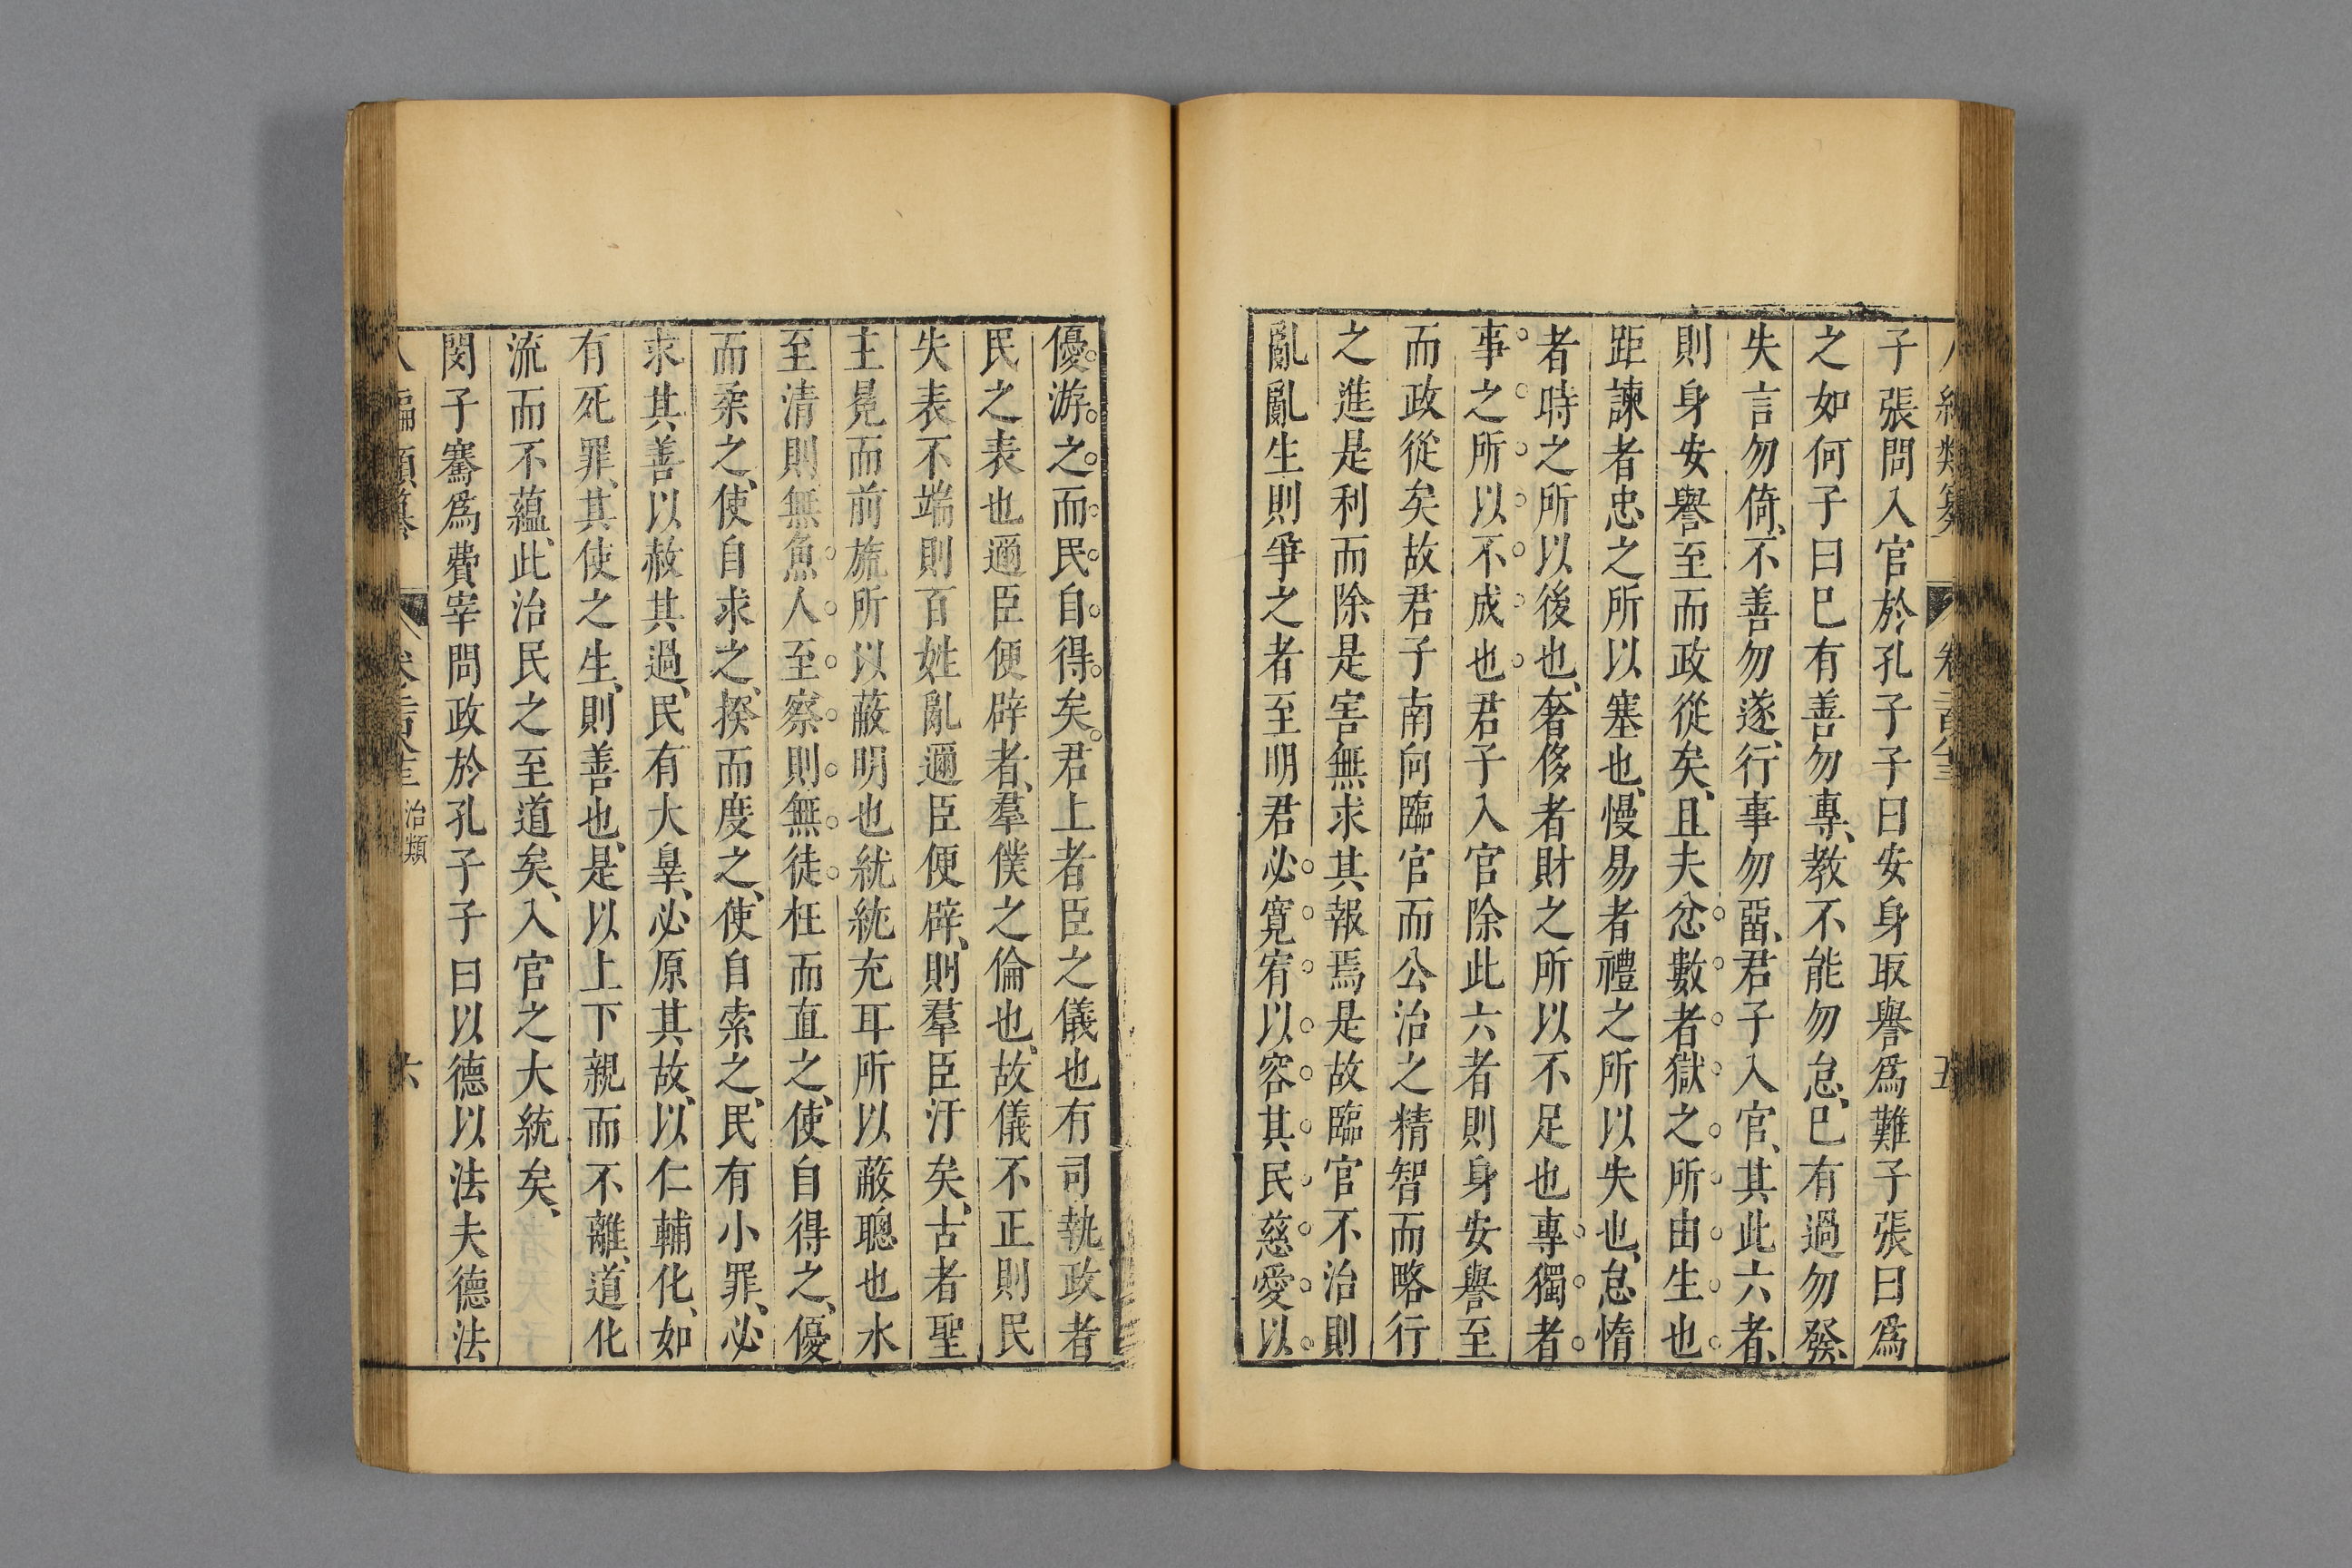 子張問入官於孔子子曰安身取譽爲難子張曰爲
之如何子曰已有善勿專、教不能勿怠、已有過勿發、
失言勿倚、不善勿遂、行事勿畱、君子入官、其此六者、
則身安譽至而政從矣、且夫忿數者獄之所由生也
距諫者忠之所以塞也、慢易者禮之所以失也、怠惰
者時之所以後也、奢侈者財之所以不足也專獨者
事之所以不成也君子入官除此六者則身安譽至
而政從矣故君子南向臨官而公治之精智而略行
之進是利而除是害無求其報焉是故臨官不治則
亂亂生則爭之者至明君必寬宥以容其民慈愛以
優游之而民自得矣君上者臣之儀也有司執政者
民之表也邇臣便辟者、羣僕之倫也、故儀不正則民
失表不端則百姓亂邇臣便辟、則羣臣汙矣、古者聖
主冕而前旒所以蔽明也紞紞充耳所以蔽聰也水
至清則無魚人至察則無徒枉而直之、使自得之、優
而柔之、使自求之、揆而度之、使自索之、民有小罪、必
求其善以赦其過、民有大辠、必原其故、以仁輔化、如
有死罪、其使之生、則善也、是以上下親而不離、道化
流而不蘊、此治民之至道矣、入官之大統矣、
閔子騫爲費宰問政於孔子子曰以德以法夫德法
治類
六